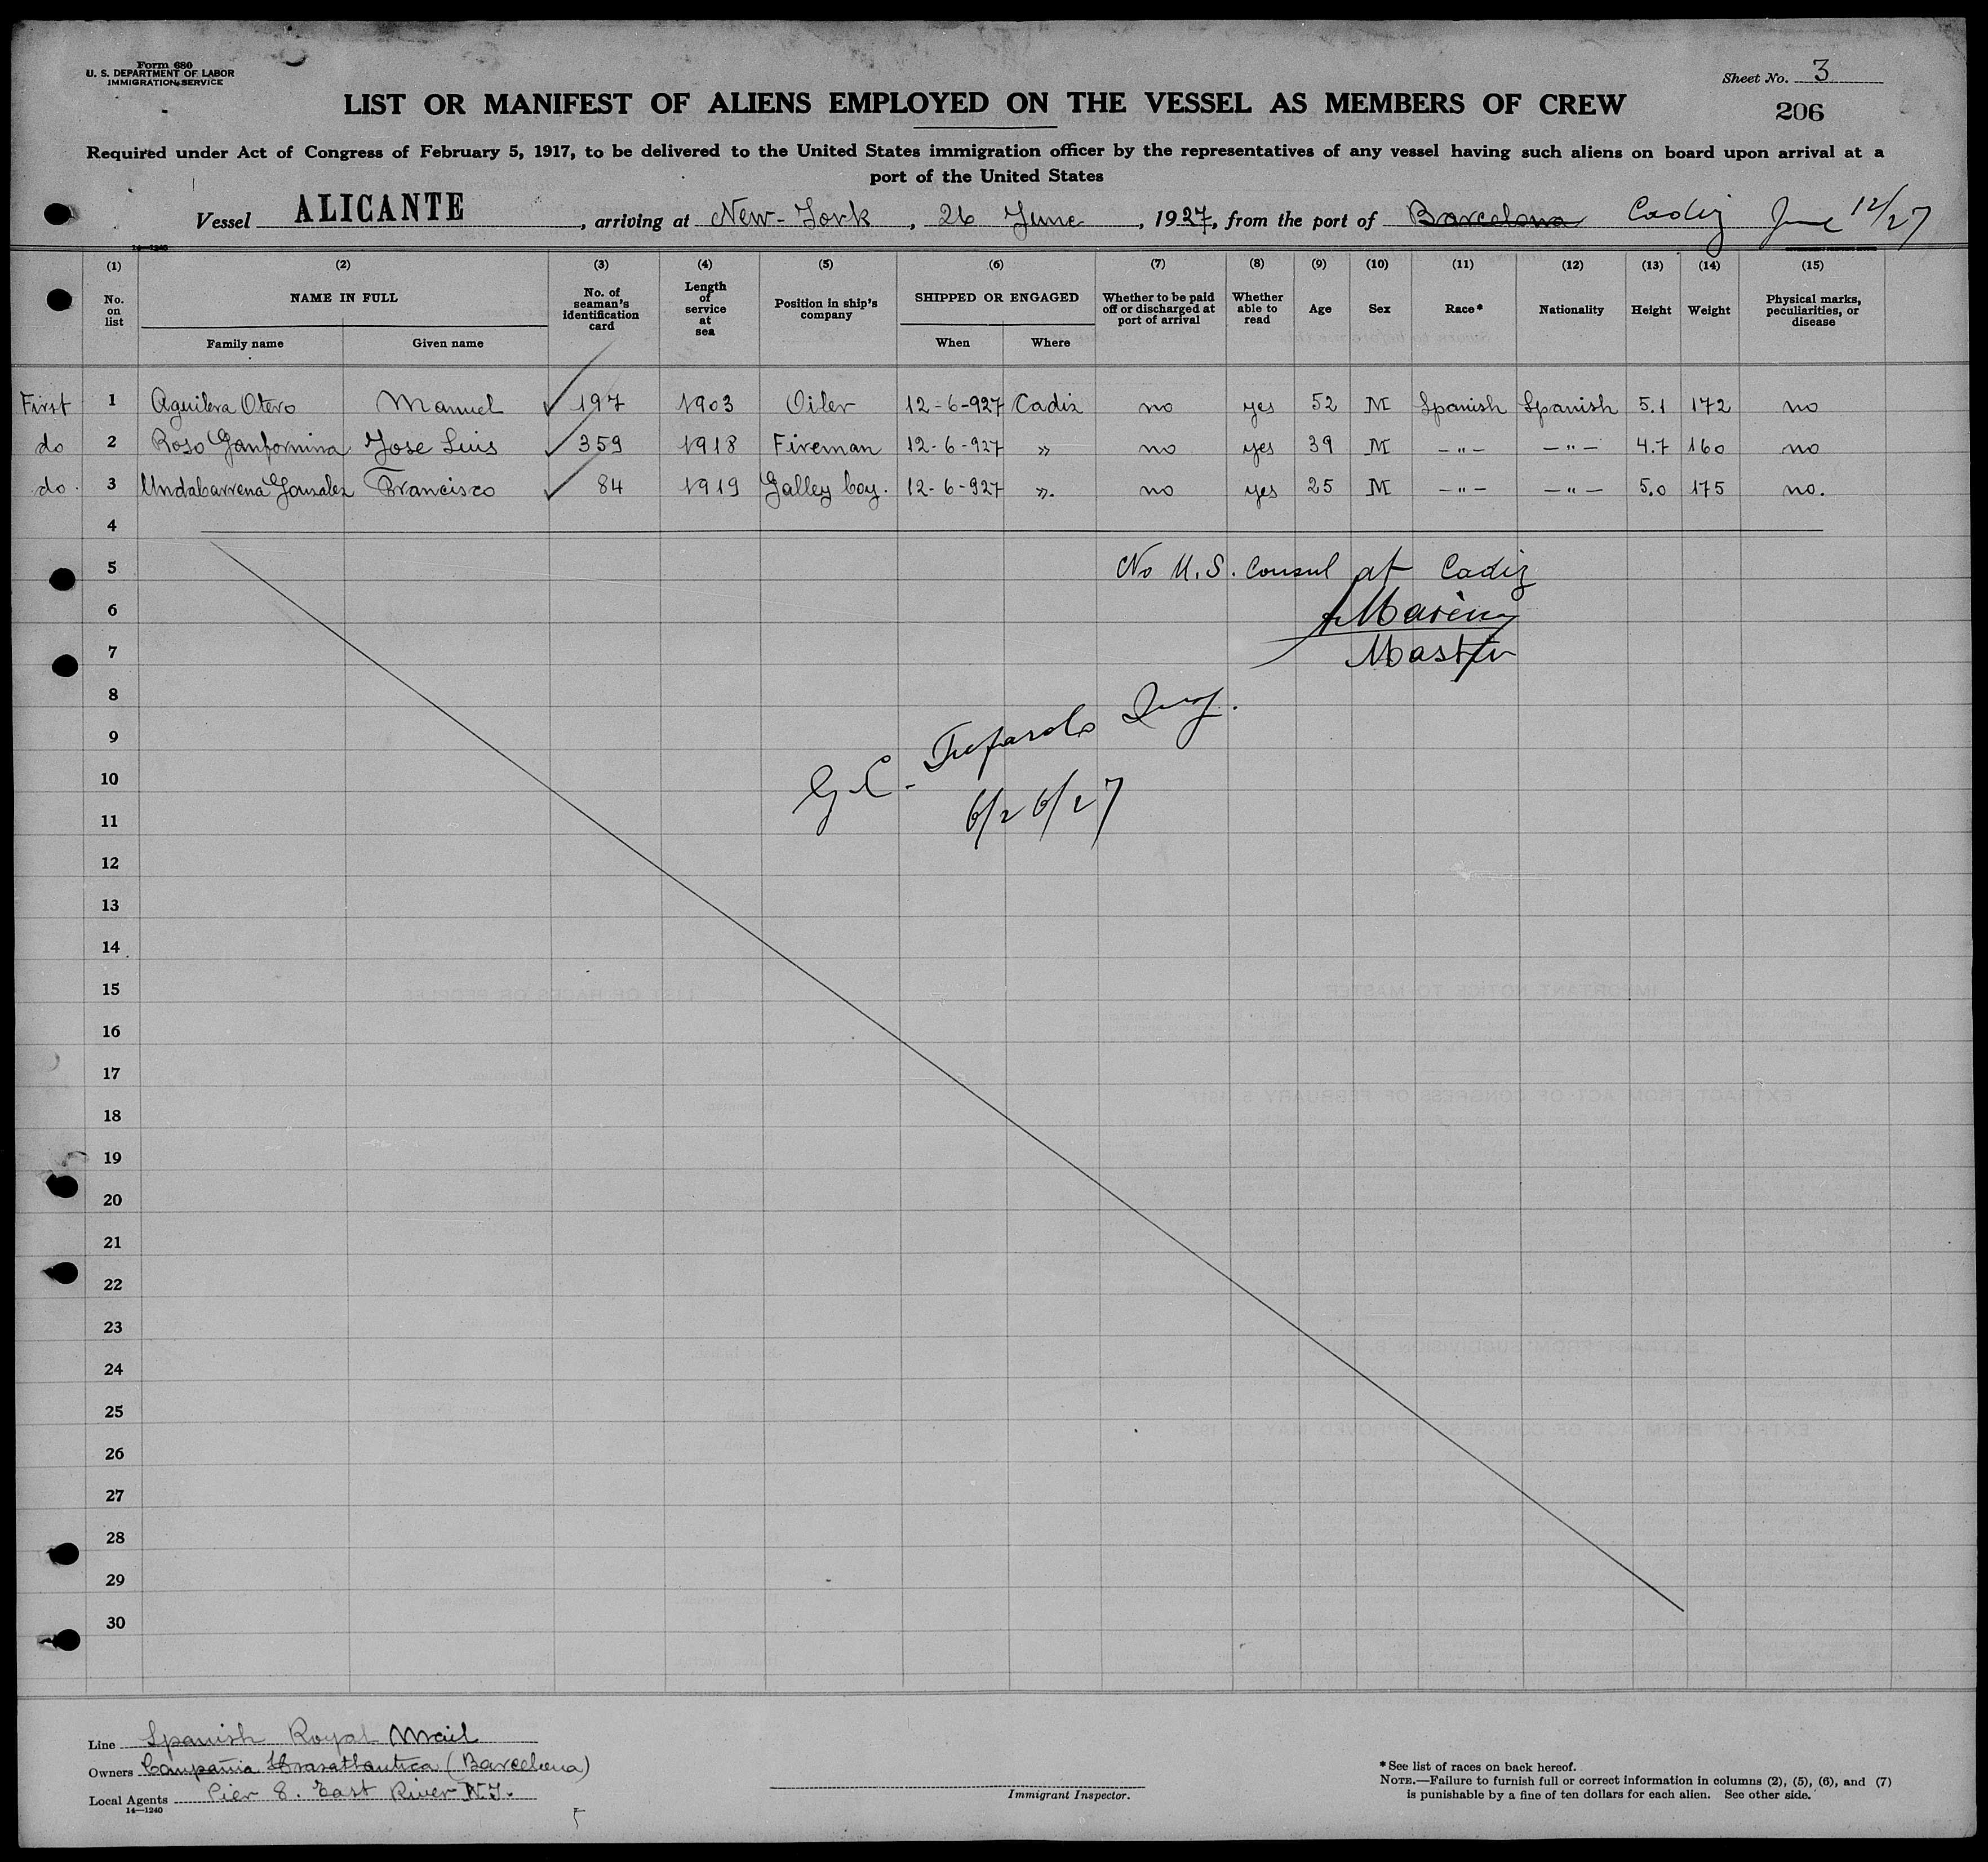 Form 680
U. S. DEPARTMENT OF LABOR
IMMIGRATION SERVICE
Sheet No. 3
206
LIST OR MANIFEST OF ALIENS EMPLOYED ON THE VESSEL AS MEMBERS OF CREW
Required under Act of Congress of February 5, 1917, to be delivered to the United States immigration officer by the representatives of any vessel having such aliens on board upon arrival at a
port of the United States
Vessel ALICANTE, arriving at New-York, 26 June, 1927, from the port of Barcelona Cadiz June 12/27
14—1240
(1) (2) (3) (4) (5) (6) (7) (8) (9) (10) (11) (12) (13) (14) (15)
No. on list NAME IN FULL Family name Given name No. of seaman's identification card Length of service at sea Position in ship's company SHIPPED OR ENGAGED When Where Whether to be paid off or discharged at port of arrival Whether able to read Age Sex Race* Nationality Height Weight Physical marks, peculiarities, or disease
First 1 Aguilera Otero Manuel 197 1903 Oiler 12-6-927 Cadiz no yes 52 M Spanish Spanish 5.1 172 no
do 2 Roso Ganfornina Jose Luis 359 1918 Fireman 12-6-927 " no yes 39 M -"- -"- 4.7 160 no
do. 3 Undabarrena Gonzalez Francisco 84 1919 Galley boy. 12-6-927 ". no yes 25 M -"- -"- 5.0 175 no.
4
5 No U.S. Consul at Cadiz
6
7 Master
8
9
10
11 6/26/27
12
13
14
15
16
17
18
19
20
21
22
23
24
25
26
27
28
29
30
Line Spanish Royal Mail
Owners Compañia Trasatlantica (Barcelona)
Local Agents Pier 8. East River N.Y.
14—1240
Immigrant Inspector.
* See list of races on back hereof.
NOTE.—Failure to furnish full or correct information in columns (2), (5), (6), and (7)
is punishable by a fine of ten dollars for each alien. See other side.